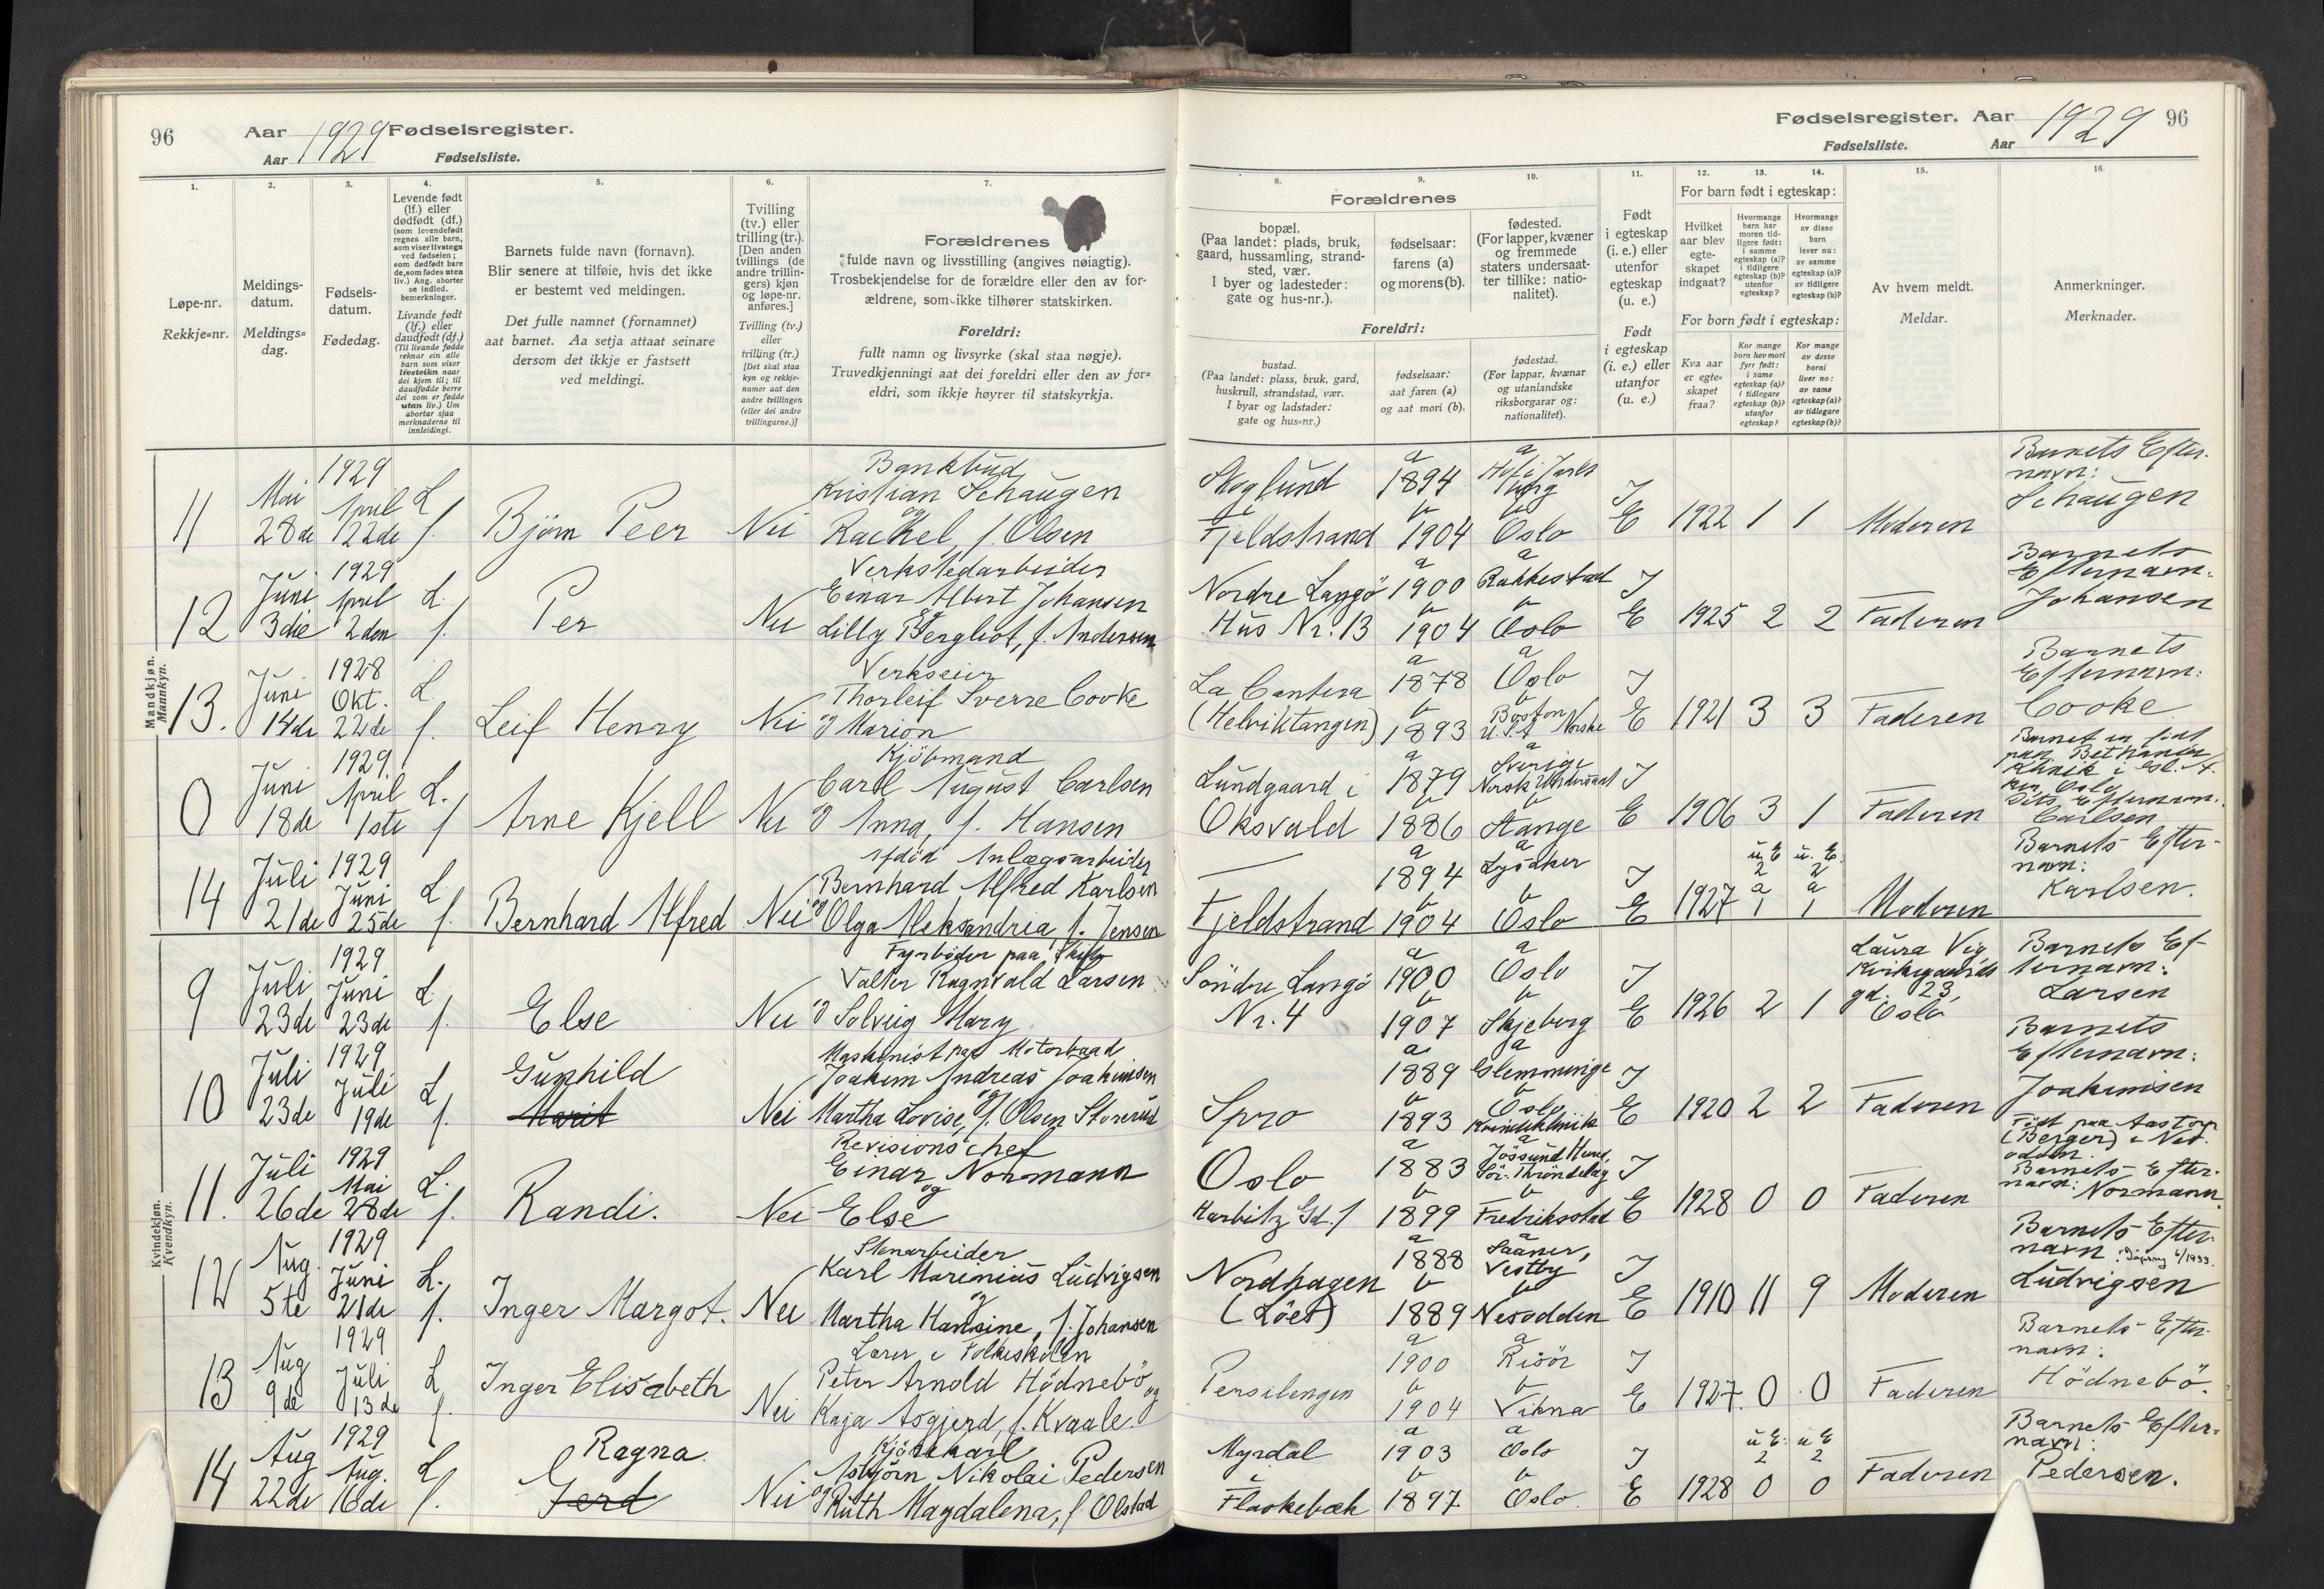 96
Aar 1929 Fødselsregister.
Aar
Fødselsliste.
1.
2.
3.
4.
5.
6.
7.
Løpe-nr.
Rekkje=nr.
Meldings-
datum.
Meldings=
dag.
Fødsels-
datum.
Fødedag.
Levende født
(lf.) eller
dødfødt (df.)
(som levendefødt
regnes alle barn,
som viser livstegn
ved fødselen;
som dødfødt bare
de, som fødes uten
liv.) Ang. aborter
se indled.
bemerkninger.
Livande født
(lf.) eller
daudfødt (df.)
(Til livande fødde
reknar ein alle
barn som viser
livsteikn naar
dei kjem til; til
daudfødde berre
dei som er fødde
utan liv.) Um
abortar sjaa
merknaderne til
innleidingi.
Barnets fulde navn (fornavn).
Blir senere at tilføie, hvis det ikke
er bestemt ved meldingen.
Det fulle namnet (fornamnet)
aat barnet. Aa setja attaat seinare
dersom det ikkje er fastsett
ved meldingi.
Tvilling
(tv.) eller
trilling (tr.).
[Den anden
tvillings (de
andre trillin-
gers) kjøn
og løpe-nr.
anføres.]
Tvilling (tv.)
eller
trilling (tr.)
[Det skal staa
kyn og rekkje-
numer aat den
andre tvillingen
(eller dei andre
trillingarne.)]
Forældrenes
fulde navn og livsstilling (angives nøiagtig).
Trosbekjendelse for de forældre eller den av for-
ældrene, som ikke tilhører statskirken.
Foreldri:
fullt namn og livsyrke (skal staa nøgje).
Truvedkjenningi aat dei foreldri eller den av for=
eldri, som ikkje høyrer til statskyrkja.
Mandkjøn.
Mannkyn.
11
Mai
28de
1929
April
22de
L.
f.
Bjørn Peer
Nei
Bankbud
Kristian Schaugen
og
Rachel, f. Olsen
12
Juni
3die
1929
April
2den
L.
f.
Per
Nei
Verkstedarbeider
Einar Albert Johansen
og
Lilly Bergliot, f. Andersen
13.
Juni
14de
1928
Okt.
22de
L.
f.
Leif Henry
Nei
Verkseier
Thorleif Sverre Cooke
og Marion
0
Juni
18de
1929.
April
1ste
L.
f
Arne Kjell
Nei
Kjöbmand
Carl August Carlsen
og Anna, f. Hansen
14
Juli
21de
1929
Juni
25de
L.
f.
Bernhard Alfred
Nei
Afdöd Anlægsarbeider
Bernhard Alfred Karlsen
og Olga Aleksandria, f. Jensen
Kvindekjøn.
Kvendkyn.
9
Juli
23de
1929
Juni
23de
L.
f.
Else
Nei
Fyrböder paa Skib
Valter Ragnvald Larsen
og Solveig Mary
10
Juli
23de
1929
Juli
19de
L.
f.
Gunhild
Marit
Nei
Maskinist paa Motorbaad
Joakim Andreas Joakimsen
og
Martha Lovise, f. Olsen Storerud
11.
Juli
26de
1929
Mai
28de
L.
f.
Randi.
Nei
Revisionschef
Einar Normann
og
Else
12
Aug.
5te
1929
Juni
21de
L.
f.
Inger Margot.
Nei
Stenarbeider
Karl Marinius Ludvigsen
og
Martha Hansine, f. Johansen
13
Aug
9de
1929
Juli
13de
L
f.
Inger Elisabeth
Nei
Lærer i Folkeskolen
Peter Arnold Hödnebö og
Kaja Asgjerd, f. Kvaale.
14
Aug
22de
1929
Aug.
16de
L
f.
Ragna.
Gerd
Nei
Asbjörn Nikolai Pedersen
og Ruth Magdalena, f Olstad
Fødselsregister. Aar 1929 96
Fødselsliste.
Aar
8.
9.
10.
11.
12.
13.
14.
15.
16.
Forældrenes
bopæl.
(Paa landet: plads, bruk,
gaard, hussamling, strand-
sted, vær.
I byer og ladesteder:
gate og hus-nr.).
fødselsaar:
farens (a)
og morens (b).
fødested.
(For lapper, kvæner
og fremmede
staters undersaat-
ter tillike: natio-
nalitet).
Foreldri:
bustad.
(Paa landet: plass, bruk, gard,
huskrull, strandstad, vær.
I byar og ladstader:
gate og hus=nr.)
fødselsaar:
aat faren (a)
og aat mori (b).
fødestad.
(For lappar, kvænar
og utanlandske
riksborgarar og:
nationalitet).
Født
i egteskap
(i. e.) eller
utenfor
egteskap
(u. e.)
Født
i egteskap
(i. e.) eller
utanfor
egteskap
(u. e.)
For barn født i egteskap:
Hvilket
aar blev
egte-
skapet
indgaat?
Hvormange
barn har
moren tid-
ligere født:
i samme
egteskap (a)?
i tidligere
egteskap (b)?
utenfor
egteskap?
Hvormange
av disse
barn
lever nu:
av samme
egteskap (a)?
av tidligere
egteskap (b)?
For born født i egteskap:
Kva aar
er egte-
skapet
fraa?
Kor mange
born hev mori
fyrr født:
i same
egteskap (a)?
i tidlegare
egteskap (b)?
utanfor
egteskap?
Kor mange
av desse
borni
liver no:
av same
egteskap (a)?
av tidlegare
egteskap (b)?
Av hvem meldt.
Meldar.
Anmerkninger.
Merknader.
Skoglund
Fjeldstrand
a
1894
b
1904
a
b
Oslo
I
E
1922
1
1
Moderen
Barnets Efter-
navn:
Schaugen
Nordre Langö
Hus Nr. 13
a
1900
b
1904
a
Rakkestad
b
Oslo
I
E
1925
2
2
Faderen
Barnets
Efternavn:
Johansen
La Cantera
(Helviktangen)
a
1878
b
1893
a
Oslo
b
Boston
U.S.A Norske
I
E
1921
3
3
Faderen
Barnets
Efternavn:
Cooke
Lundgaard i
Oksvald
a
1879
b
1886
a
Sverige
Norsk Undersaat
b
Stange
I
E
1906
3
1
Faderen
Barnet er født
paa Bethania
Klinik i
Oslo
Dets Efternavn:
Carlsen
—
Fjeldstrand
a
1894
b
1904
a
Lysaker
b
Oslo
I
E
1927
u E
2
a
1
u. E.
2
a
1
Moderen
Barnets Efter-
navn:
Karlsen.
Söndre Langö
Nr. 4
a
1900
b
1907
a
Oslo
b
Skjeberg
I
E
1926
2
1
Laura Vig
gd. 23,
Oslo
Barnets Ef-
ternavn:
Larsen
Spro
a
1889
b
1893
a
Glemminge
b
Oslo
Kvindeklinik
I
E
1920
2
2
Faderen
Barnets
Efternavn:
Joakimsen
Oslo
Harbitz Gd. 1
a
1883
b
1899
a
Jössund Herred,
Sör-Thröndelag
b
Fredriksstad
I
E
1928
0
0
Faderen
Född paa Aastorp
(Berger) i Nes-
odden.
Barnets Efter-
navn: Normann.
Nordhagen
(Löes)
a
1888
b
1889
Saaner,
Vestby
b
Nesodden
I
E
1910
11
9
Moderen
Barnets Efter-
navn:
Ludvigsen
Persilengen
a
1900
b
1904
a
Risör
b
Vikna
I
E
1927.
0
0
Faderen
Barnets Efter-
navn:
Hödnebö.
Myrdal
i
Flaskebæk
a
1903
b
1897
a
Oslo
b
Oslo.
I
E
1928
u E:
2
0
u E
2
0
Faderen
Barnets Efter-
navn:
Pedersen.